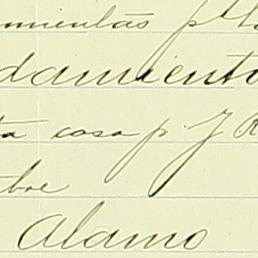 mientas pª
damiento
ta casa p. J R
bre
Alamo